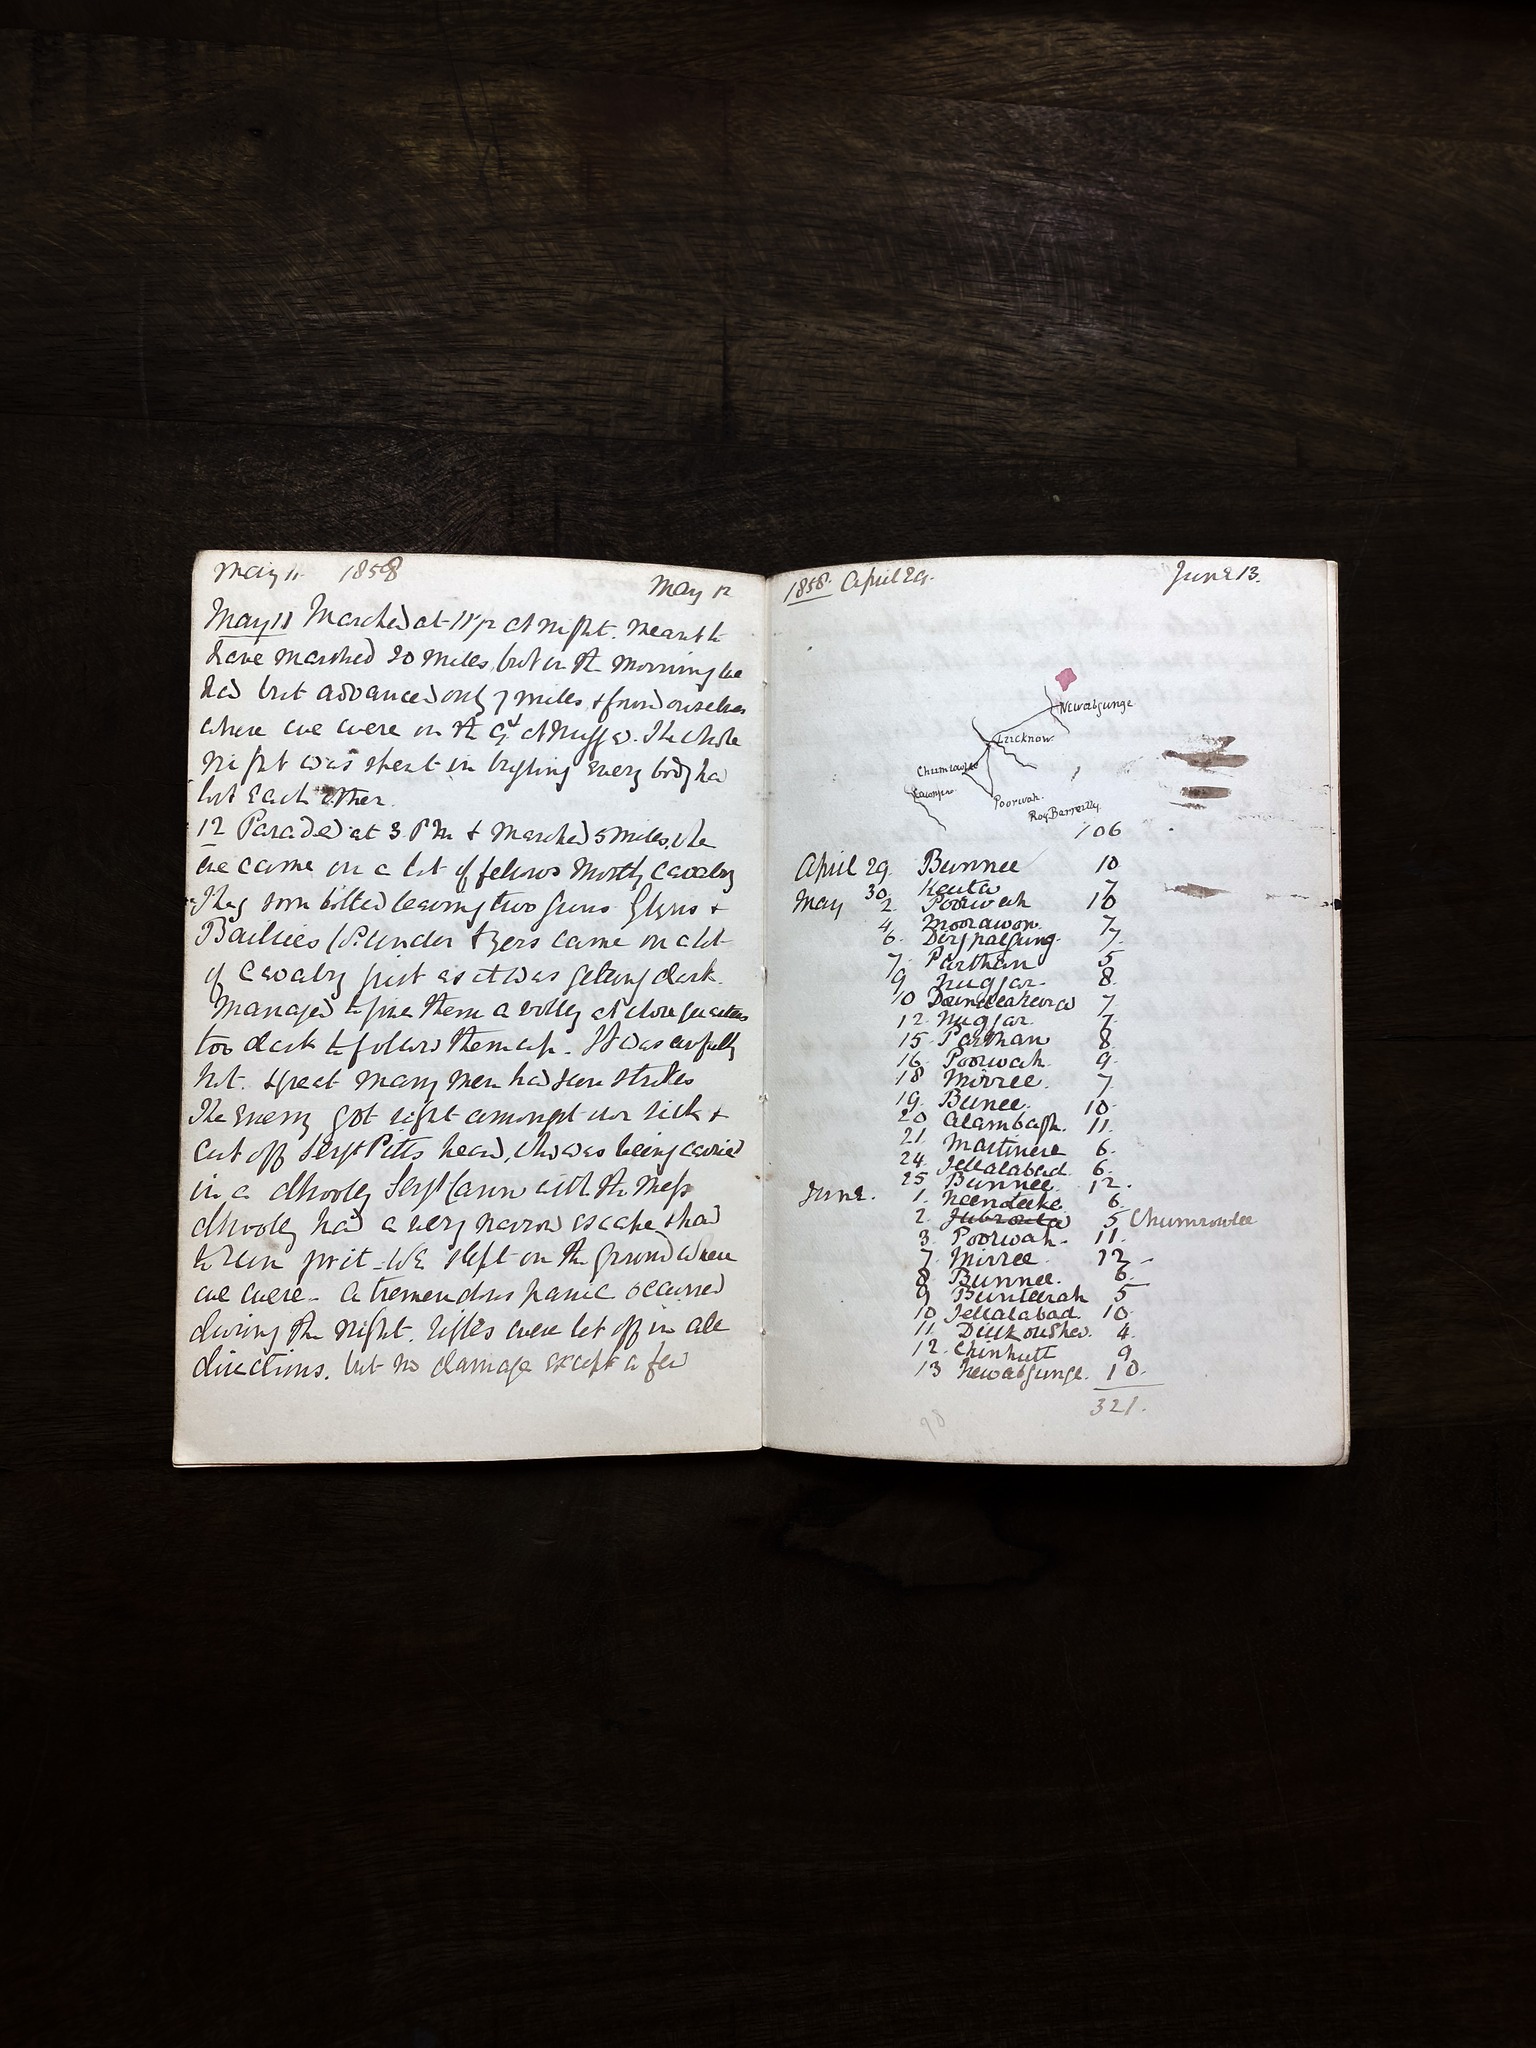 May 11 1858 May 12
May 11 Marched at 11 p at night. Meant to
have marched 20 miles, but in the morning we
had but advanced only 7 miles, & found ourselves
where we were on the 9th at Nuggur. The whole
night was spent in bugling every body had
lost each other.
12 Paraded at 3 P M & marched 5 miles, when
we came on a lot of fellows mostly cavalry
They soon bolted leaving two guns Glyns &
Baillies Co. under came on a lot
of Cavalry just as it was getting dark.
Managed to give them a volley at close quarters
too dark to follow them up. It was awfully
hot. & great many men had sun strokes
The Enemy got right amongst our sick &
cut off Sergt Pitts head, who was being carried
in a dhooley Sergt Carr with the Mess
dhooley had a very narrow escape & had
to run for it. We slept on the ground where
we were. A tremendous panic occurred
during the night. rifles were let off in all
directions. but no damage except a few
1858. April 29. June 13.
Newabgunge
Lucknow
Chumrowlee
Cawnpr
Poorwah.
Roy Barreilly.
106
April 29. Bunnee 10
30. Kanta 7
May 2. Poorwah 16
4. Moorawon 7
6. Dirzpalgung. 7.
7. Parthan 5
9 Nuggar. 8.
10 Doundeakeira 7
12. Nuggar. 7.
15. Parthan 8
16. Poorwah. 9.
18 Mirree. 7
19. Bunee. 10.
20 Alambagh. 11.
21. Martiniere 6.
24. Jellalabad 6.
25 Bunnee. 12.
June. 1. Neendeeke 6.
2. Jubrowlee 5 Chumrowlee
3. Poorwah. 11.
7. Mirree. 12
8. Bunnee. 6.
9 Bunteerah 5
10. Jellalabad 10.
11. Dilkousher. 4.
12. Chinhutt 9
13 Newabgunge. 10.
321.
98